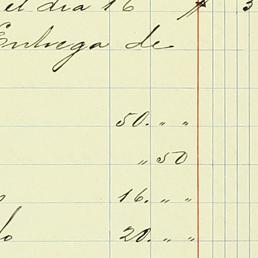 el dia 16 $ 3
Entrega de
50. " "
" 50
16. " "
20. " "